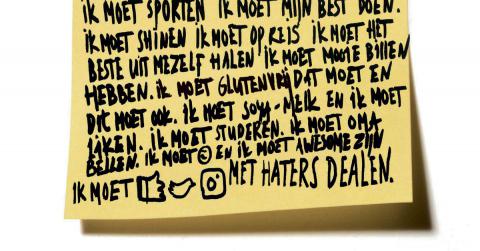 IK MOET SPORTEN IK MOET MIJN BEST DOEN.
IK MOET SHINEN IK MOET OP REIS IK MOET HET
BESTE UIT MEZELF HALEN IK MOET MOOIE BILLEN
HEBBEN. IK MOET GLUTENVRIJ DAT MOET EN
DIT MOET OOK. IK MOET SOYA-MELK EN IK MOET
IK MOET STUDEREN. IK MOET OMA
BELLEN. IK MOET € EN IK MOET AWESOME ZIJN
IK MOET MET HATERS DEALEN.